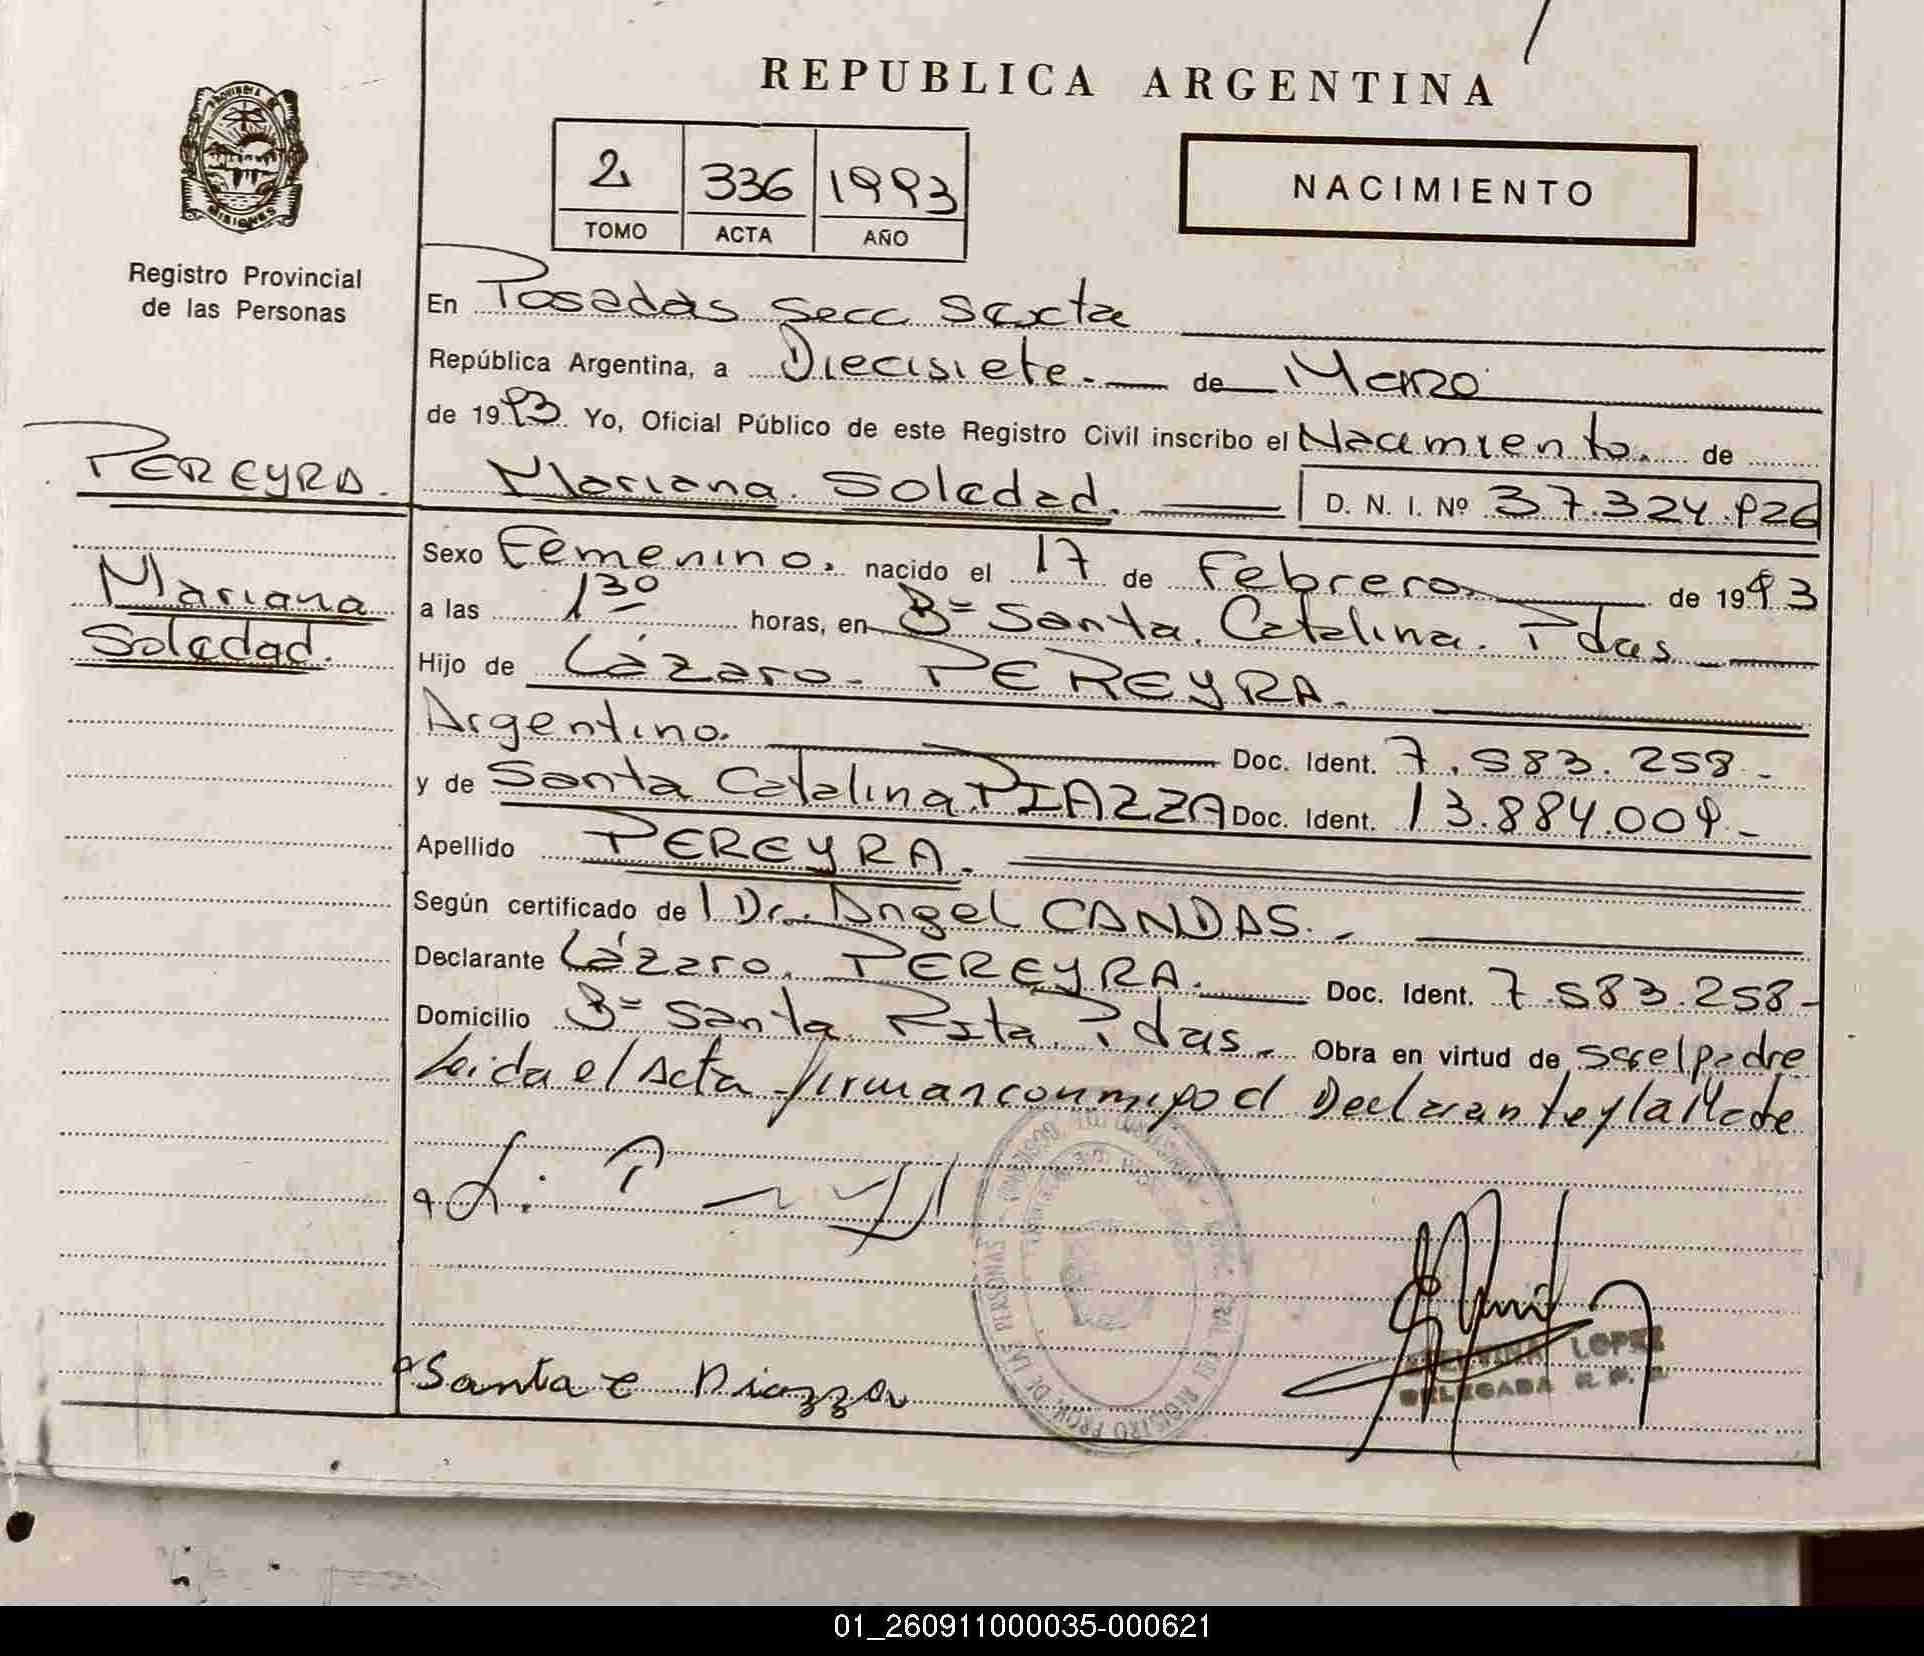 REPUBLICA ARGENTINA
PROVINCIA DE
MISIONES
Registro Provincial
de las Personas
2 336 1993
TOMO ACTA AÑO
NACIMIENTO
En Posadas Secc Sexta
República Argentina, a Diecisiete.- de Marzo
de 1993 Yo, Oficial Público de este Registro Civil inscribo el Nacimiento. de
PEREYRA.
Mariana
Soledad.
Mariana Soledad. D. N. I. Nº 37.324.926
Sexo Femenino. nacido el 17 de Febrero de 1993
a las 1 30 horas, en Bº Santa Catalina. Pdas
Hijo de Lázaro PEREYRA.
Argentino. Doc. Ident. 7.583.258-
y de Santa Catalina PIAZZA Doc. Ident. 13.884.009-
Apellido PEREYRA.
Según certificado de Dr. Angel CANDAS.-
Declarante Lázaro. PEREYRA. Doc. Ident. 7.583.258-
Domicilio Bº Santa Rita. Pdas.- Obra en virtud de ser el padre
Leida el Acta firman conmigo el Declarante y la Madre
Santa C Piazza
LOPEZ
DELEGADA R. P. P.
REGISTRO PROV. DE LAS PERSONAS
01_260911000035-000621